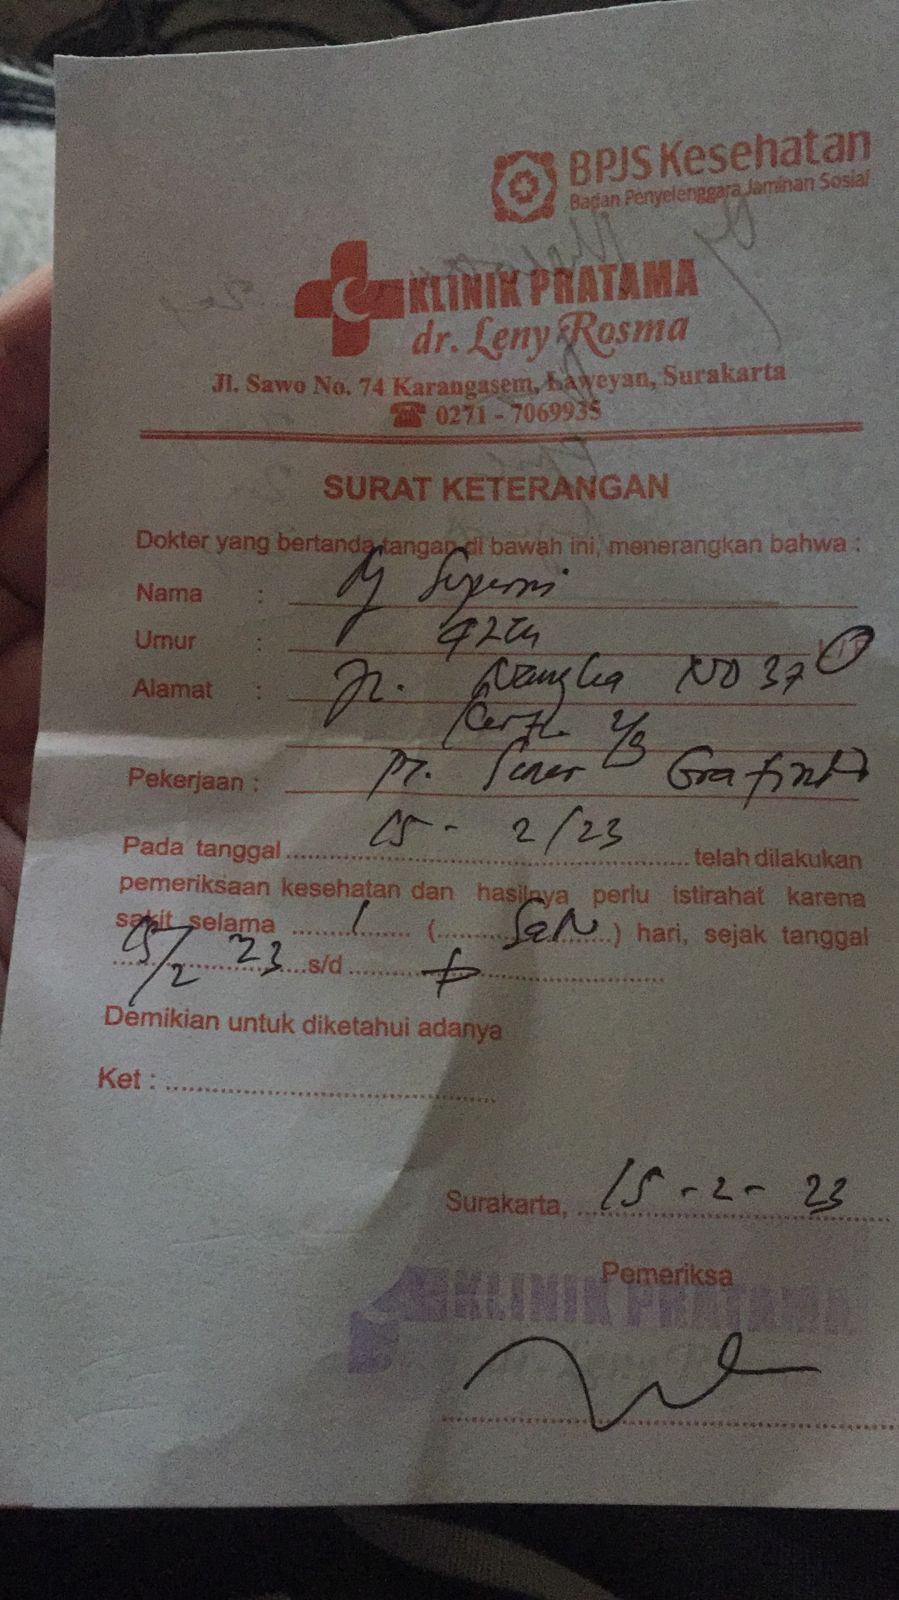 BPJS Kesehatan
Badan Penyelenggara Jaminan Sosial
KLINIK PRATAMA
dr. Leny Rosma
Jl. Sawo No. 74 Karangasem, Laweyan, Surakarta
☎ 0271 - 7069935
SURAT KETERANGAN
Dokter yang bertanda tangan di bawah ini, menerangkan bahwa :
Nama :
Umur :
Alamat : Jl. Nangka NO 37
Pekerjaan : PT.
Pada tanggal 15 - 2/23 telah dilakukan
pemeriksaan kesehatan dan hasilnya perlu istirahat karena
sakit selama 1 (Satu) hari, sejak tanggal
15/2 23 s/d
Demikian untuk diketahui adanya
Ket :
Surakarta, 15 - 2 - 23
Pemeriksa
KLINIK PRATAMA